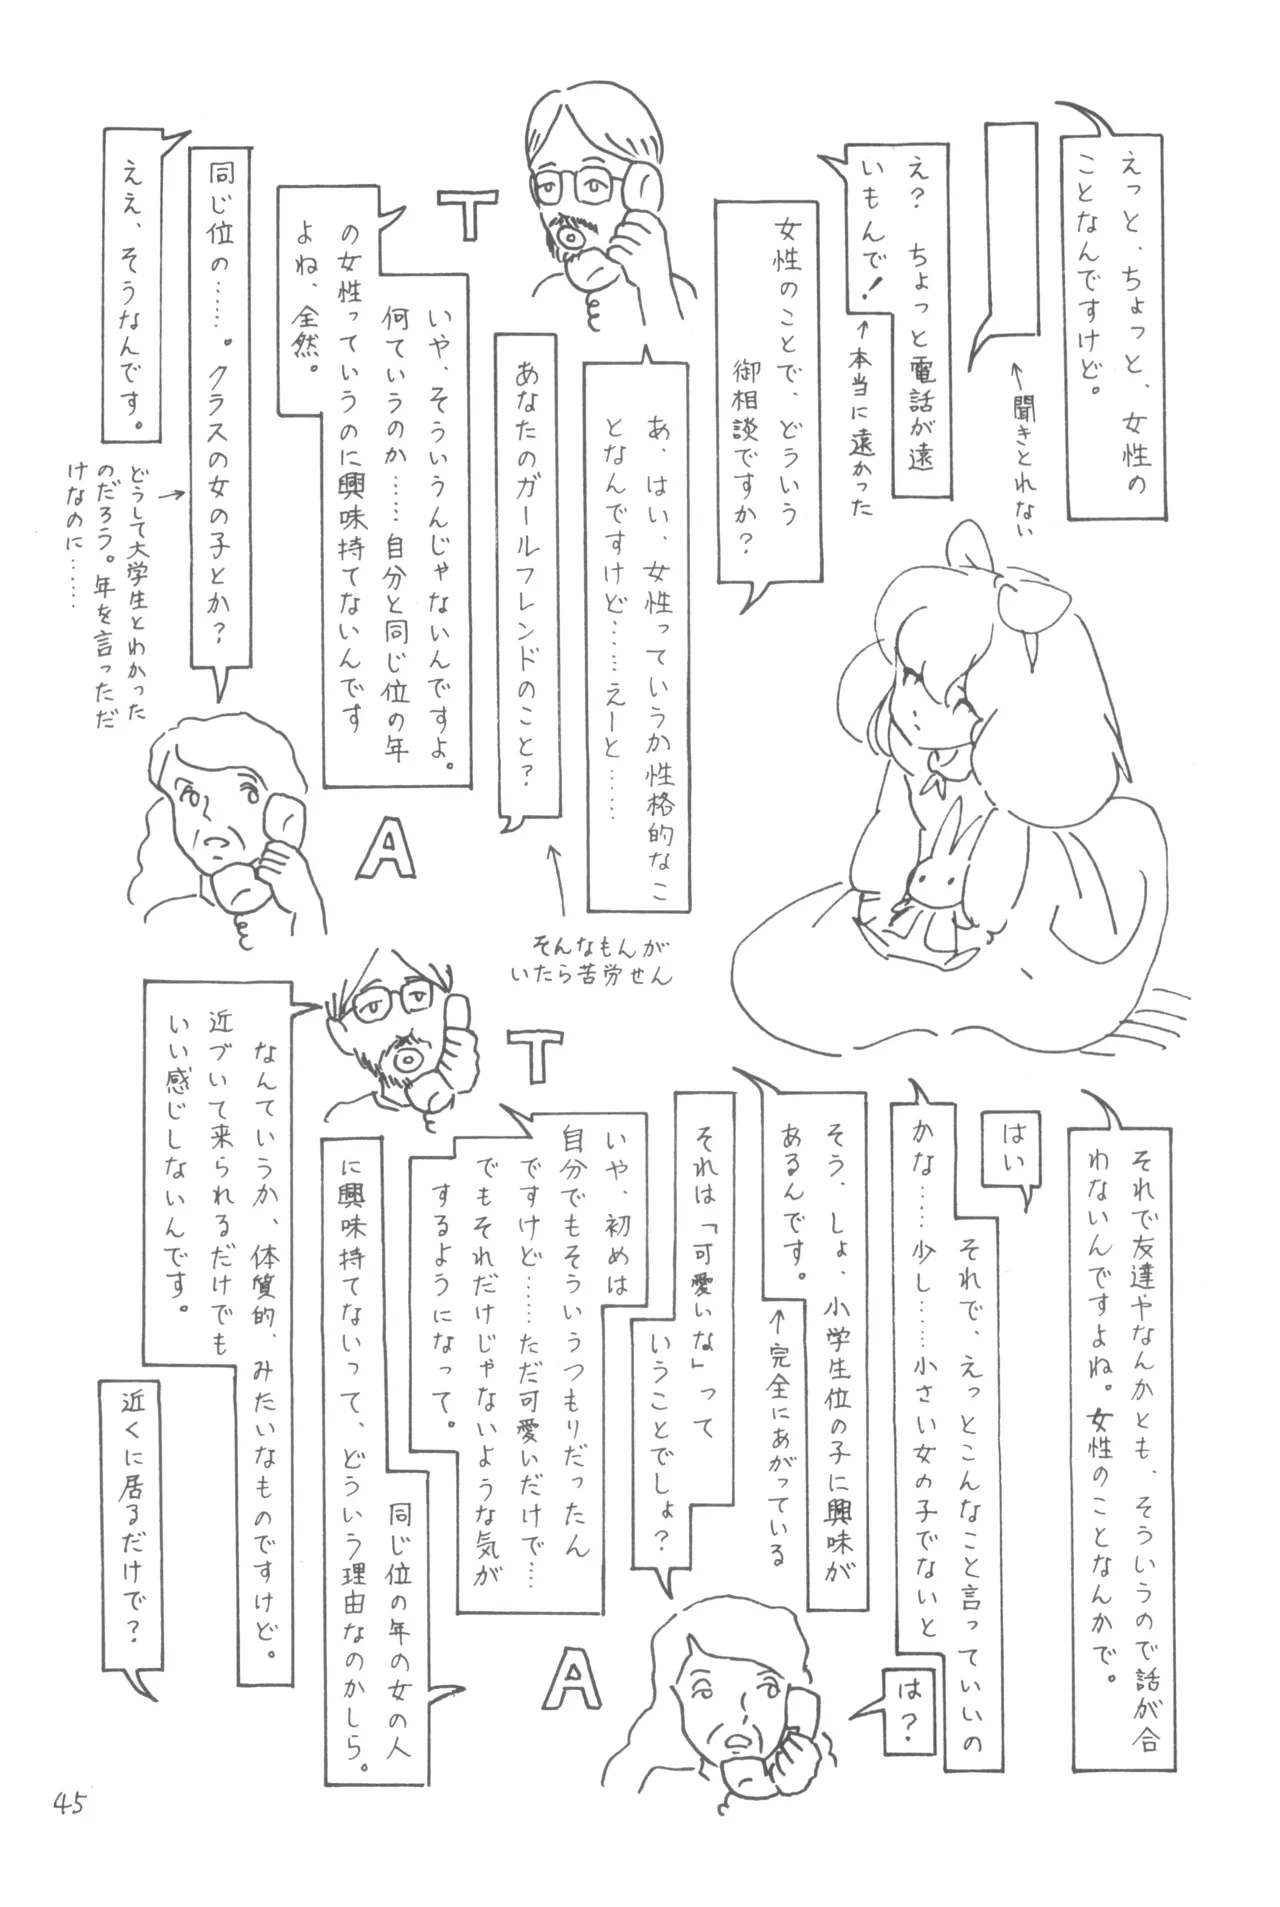 えっと、ちょっと、女性の
ことなんですけど。
↑聞きとれない
え? ちょっと電話が遠
いもんで!
↑本当に遠かった
女性のことで、どういう
御相談ですか?
T
あ、はい、女性っていうか性格的なこ
となんですけど……えーと……
あなたのガールフレンドのこと?
↑
そんなもんが
いたら苦労せん
いや、そういうんじゃないんですよ。
何ていうのか……自分と同じ位の年
の女性っていうのに興味持てないんです
よね、全然。
A
同じ位の……。クラスの女の子とか?
↑
どうして大学生とわかった
のだろう。年を言っただ
けなのに……
ええ、そうなんです。
それで友達やなんかとも、そういうので話が合
わないんですよね。女性のことなんかで。
はい
それで、えっとこんなこと言っていいの
かな……少し……小さい女の子でないと
は?
そう、しょ、小学生位の子に興味が
あるんです。
↑完全にあがっている
それは「可愛いな」って
いうことでしょ?
A
T
いや、初めは
自分でもそういうつもりだったん
ですけど……ただ可愛いだけで…
でもそれだけじゃないような気が
するようになって。
同じ位の年の女の人
に興味持てないって、どういう理由なのかしら。
なんていうか、体質的、みたいなものですけど。
近づいて来られるだけでも
いい感じしないんです。
近くに居るだけで?
45